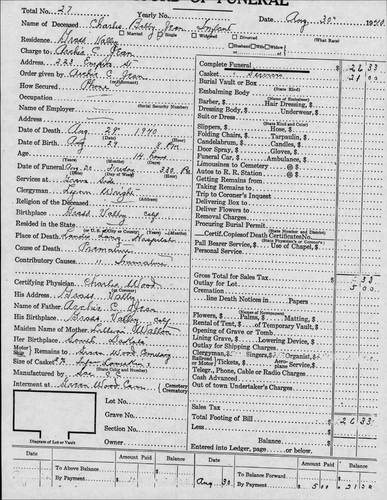 RECORD OF FUNERAL
Total No. 27 Yearly No. Date Aug 30 1940
Name of Deceased Charlie Baby Jean Infant
Married Single Widowed Divorced (What Race)
Residence Grass Valley Husband Wife Widow of
Charge to Archie C. Jean
Address 223
Order given by Archie C. Jean
How Secured Phone
Occupation
(Social Security Number)
Name of Employer
Address
Date of Death Aug 29 1940
Date of Birth Aug 29 8 PM
Age 14 hours
(Years) (Months) (Days)
Date of Funeral Aug 30 Friday 3:30 PM
Services at Grave Side
Clergyman Lynn Wright
Religion of the Deceased
Birthplace Grass Valley
Resided in the State
Place of Death Hospital
Cause of Death Premature
Contributory Causes
Certifying Physician Charlie Wood
His Address Grass Valley
Name of Father Archie C. Jean
His Birthplace Grass Valley
Maiden Name of Mother Lillian
Her Birthplace South Dakota
Motor Remains to
Size of Casket
(State Color and Number)
Manufactured by
Interment at Green Wood Cem Cemetery Crematory
Lot No.
Grave No.
Section No.
Owner
Diagram of Lot or Vault
Complete Funeral 26 33
Casket 21 00
Burial Vault or Box
(State Kind)
Embalming Body
Barber, $ Hair Dressing, $
Dressing Body, $ Underwear, $
Suit or Dress
(State Kind)
Slippers, $ Hose, $
Folding Chairs, $ Tarpaulin, $
Candelabrum, $ Candles, $
Door Spray, $ Gloves, $
Funeral Car, $ Ambulance, $
Limousines to Cemetery @ $
Autos to R. R. Station @ $
Getting Remains from
Taking Remains to
Trip to Coroner's Inquest
Delivering Box to
Deliver Flowers to
Removal Charges
Procuring Burial Permit
(State Municipal and District)
Certif. Copies of Death Certificates No.
(State Physician's or Coroner's)
Pall Bearer Service, $ Use of Chapel, $
Personal Service
Gross Total for Sales Tax 33
Outlay for Lot 5 00
Cremation
line Death Notices in Papers
Flowers, $ Palms, $ Matting, $
Rental of Tent, $ of Temporary Vault, $
Opening of Grave or Tomb
Lining Grave, $ Lowering Device, $
Outlay for Shipping Charges
Clergyman, $ Singers, $ Organist, $
Telegr., Phone, Cable or Radio Charges
Cash Advanced
Out of town Undertaker's Charges
Sales Tax
Total Footing of Bill 26 33
Less
Balance
Entered into Ledger, page or below.
Date Amount Paid Balance Date Amount Paid Balance
To Above Balance To Balance Forward
By Payment Aug 30 By Payment 5 00 21 33